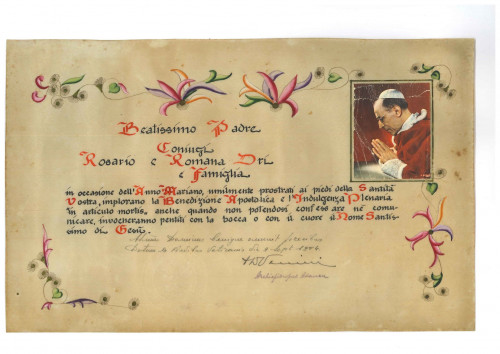 Beatissimo Padre
Coniugi
Rosario e Romana Dri
e Famiglia
in occasione dell'Anno Mariano, umilmente prostrati ai piedi della Santità
Vostra, implorano la Benedizione Apostolica e l'Indulgenza Plenaria
in articulo mortis, anche quando non potendosi confessare nè comu-
nicare, invocheranno pentiti con la bocca o con il cuore il Nome Santis-
simo di Gesù.